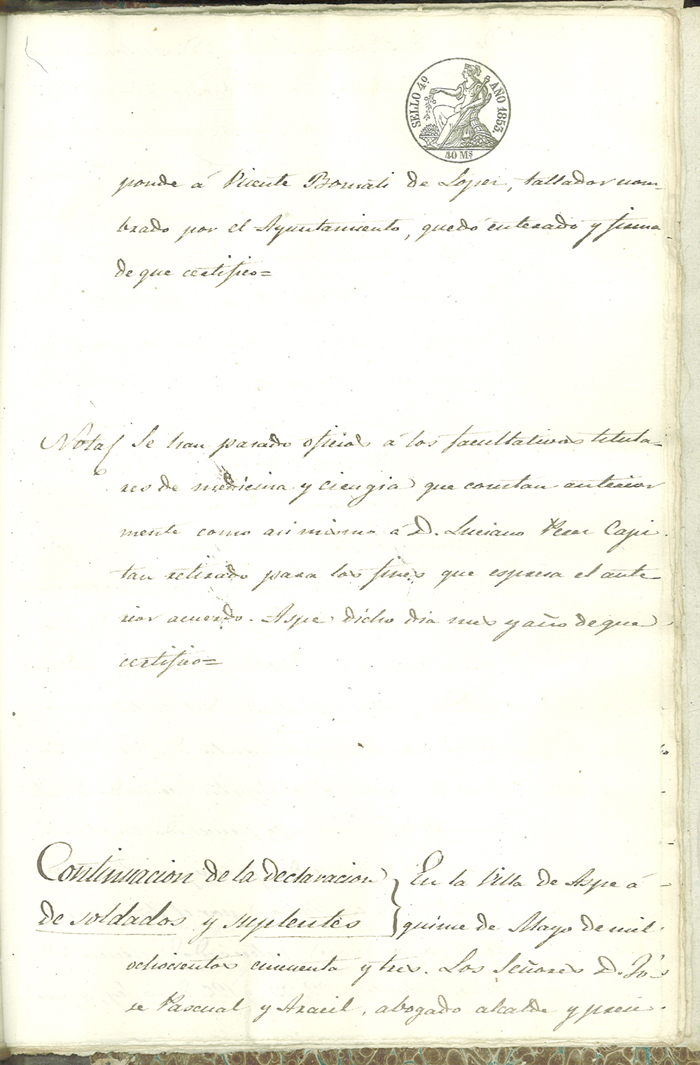 SELLO 4º AÑO 1853.
40 Ms
ponde á Vicente Bonmati de Lopez, tallador nom-
brado por el Ayuntamiento, quedó enterado y firma
de que certifico=
Nota Se han pasado oficios á los facultativos titula-
res de medicina y cirugia que constan anterior
mente como asi mismo á D. Luciano Perez Capi-
tan retirado para los fines que espresa el ante-
rior acuerdo. Aspe dicho dia mes y año de que
certifico=
Continuacion de la declaracion } En la Villa de Aspe á
de soldados y suplentes } quince de Mayo de mil
ochocientos cincuenta y tres. Los Señores D. Jo-
se Pascual y Aracil, abogado alcalde y presi-